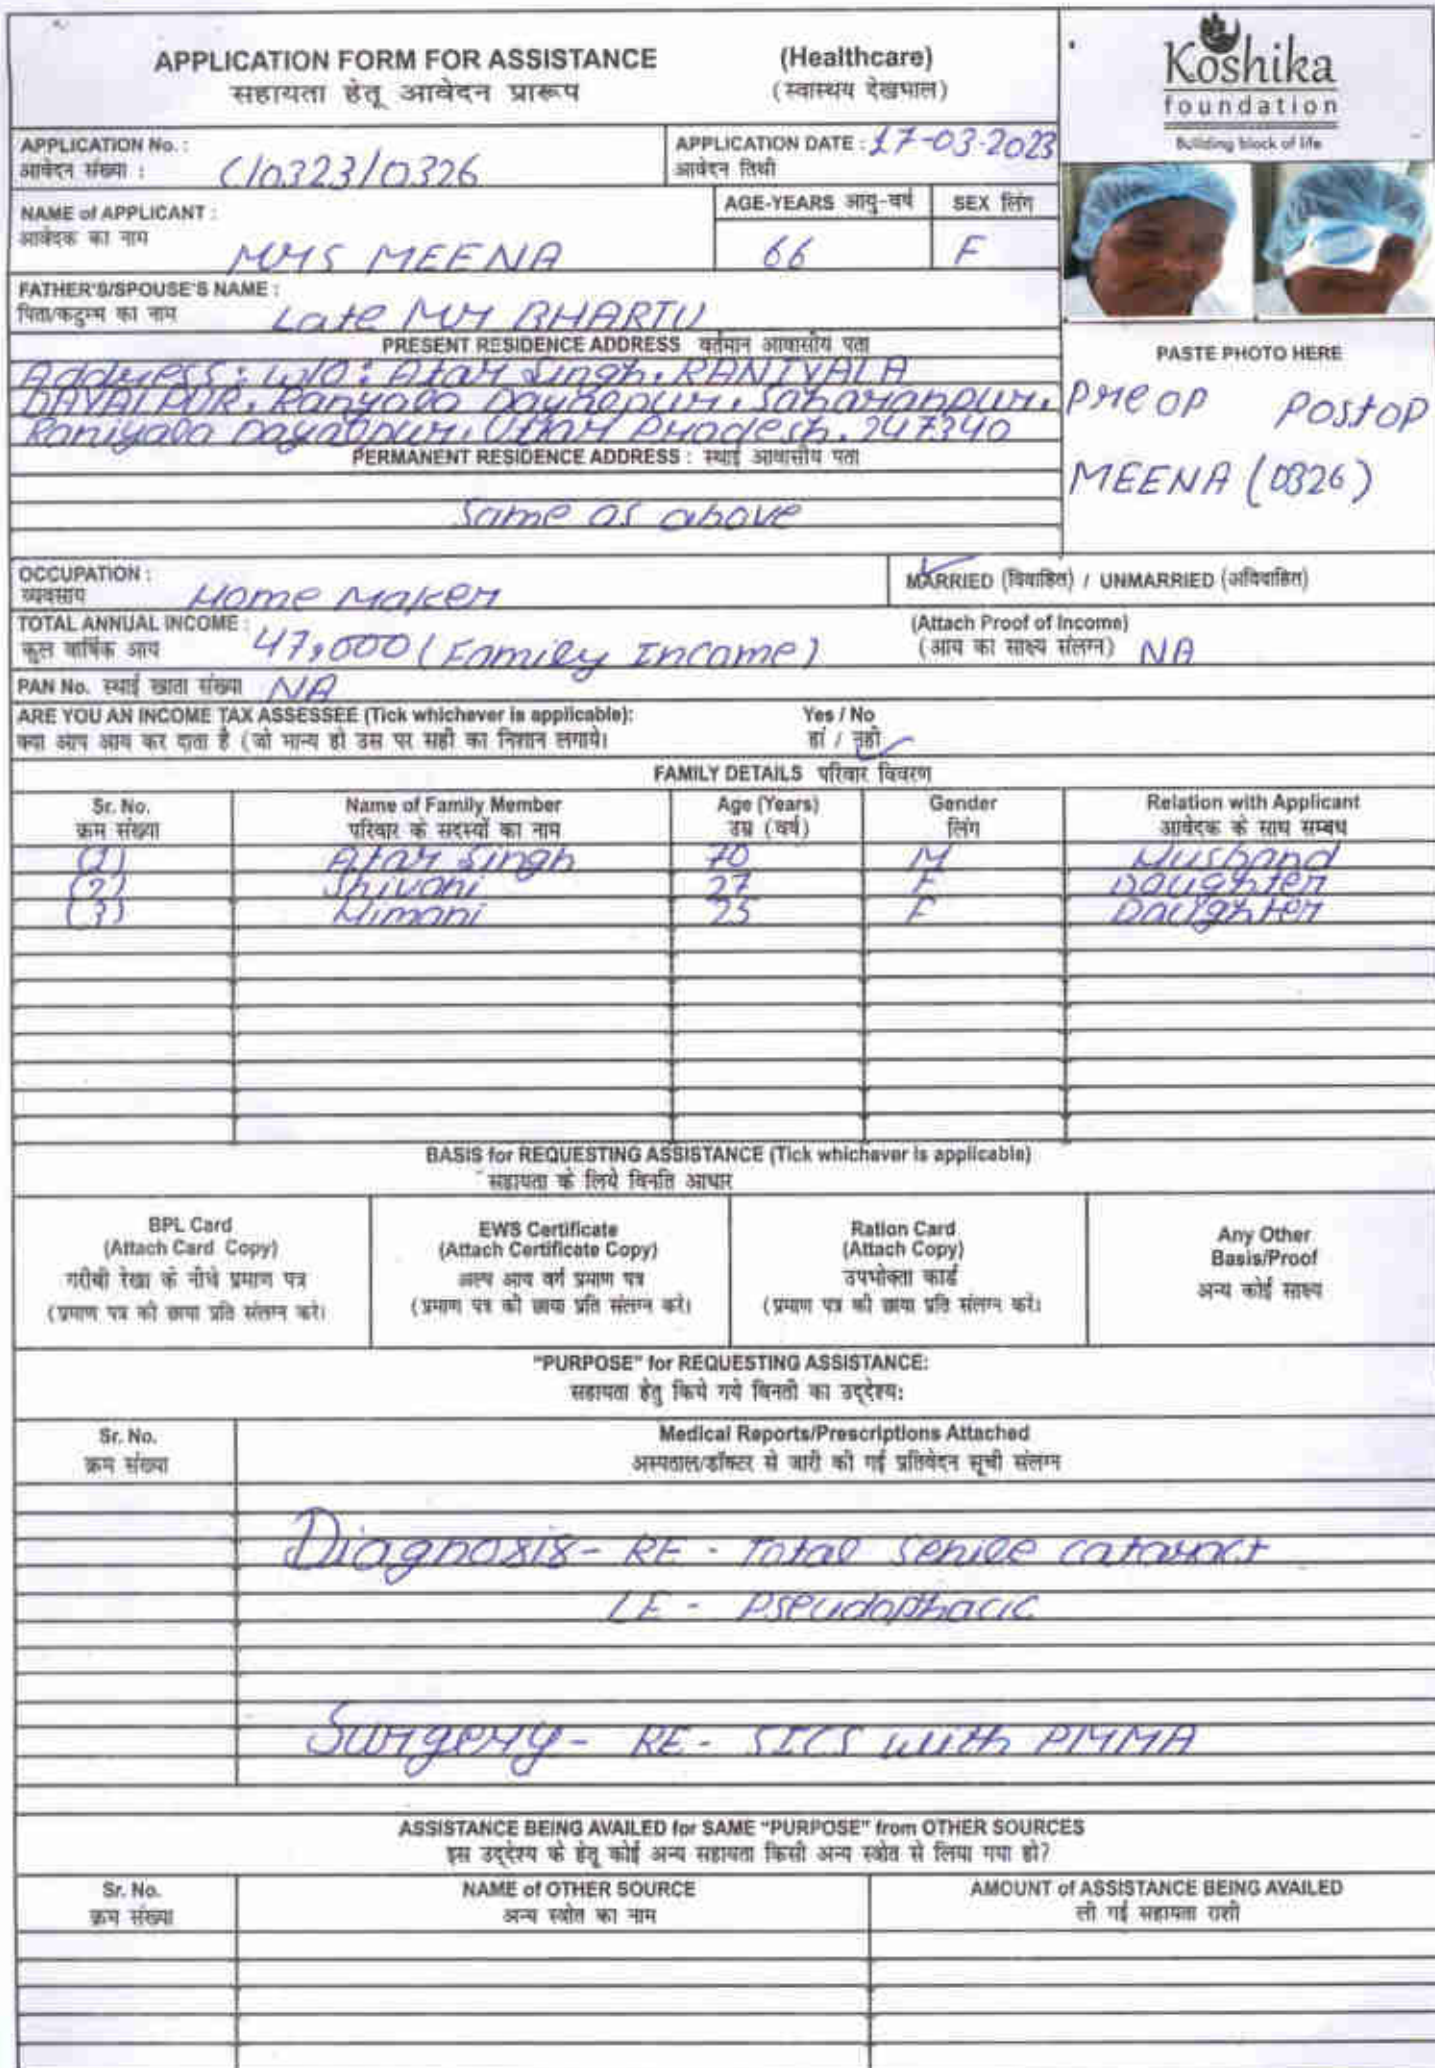 APPLICATION FORM FOR ASSISTANCE (Healthcare)
सहायता हेतू आवेदन प्रारूप (स्वास्थय देखभाल)
Koshika
foundation
Building block of life
APPLICATION No. : C/0323/0326
आवेदन संख्या :
APPLICATION DATE : 17-03-2023
आवेदन तिथी
NAME of APPLICANT :
आवेदक का नाम
Mrs MEENA
AGE-YEARS आयु-वर्ष
66
SEX लिंग
F
FATHER'S/SPOUSE'S NAME :
पिता/कटुम्ब का नाम
Late Mr BHARTU
PRESENT RESIDENCE ADDRESS वर्तमान आवासीय पता
Address: W/O: Atar Singh, RANIYALA
DAYALPUR, Ranyala Dayhapur, Saharanpur,
Raniyala Dayalpur, Uttar Pradesh, 247340
PERMANENT RESIDENCE ADDRESS : स्थाई आवासीय पता
Same as above
PASTE PHOTO HERE
Pre op Postop
MEENA (0326)
OCCUPATION :
व्यवसाय
Home Maker
MARRIED (विवाहित) / UNMARRIED (अविवाहित)
TOTAL ANNUAL INCOME :
कुल वार्षिक आय
47,000 (Family Income)
(Attach Proof of Income)
(आय का साक्ष्य संलग्न) NA
PAN No. स्थाई खाता संख्या NA
ARE YOU AN INCOME TAX ASSESSEE (Tick whichever is applicable): Yes / No
क्या आप आय कर दाता है (जो मान्य हो उस पर सही का निशान लगाये। हां / नही
FAMILY DETAILS परिवार विवरण
Sr. No. Name of Family Member Age (Years) Gender Relation with Applicant
क्रम संख्या परिवार के सदस्यों का नाम उम्र (वर्ष) लिंग आवेदक के साथ सम्बध
(1) Atar Singh 70 M Husband
(2) Shivani 27 F Daughter
(3) Himani 25 F Daughter
BASIS for REQUESTING ASSISTANCE (Tick whichever is applicable)
सहायता के लिये विनति आधार
BPL Card
(Attach Card Copy)
गरीबी रेखा के नीचे प्रमाण पत्र
(प्रमाण पत्र की छाया प्रति संलग्न करे।
EWS Certificate
(Attach Certificate Copy)
अल्प आय वर्ग प्रमाण पत्र
(प्रमाण पत्र की छाया प्रति संलग्न करे।
Ration Card
(Attach Copy)
उपभोक्ता कार्ड
(प्रमाण पत्र की छाया प्रति संलग्न करे।
Any Other
Basis/Proof
अन्य कोई साक्ष्य
"PURPOSE" for REQUESTING ASSISTANCE:
सहायता हेतु किये गये विनती का उद्देश्य:
Sr. No. Medical Reports/Prescriptions Attached
क्रम संख्या अस्पताल/डॉक्टर से जारी की गई प्रतिवेदन सूची संलग्न
Diagnosis- RE - Total Senile cataract
LE - Pseudophacic
Surgery - RE - SICS with PMMA
ASSISTANCE BEING AVAILED for SAME "PURPOSE" from OTHER SOURCES
इस उद्देश्य के हेतू कोई अन्य सहायता किसी अन्य स्त्रोत से लिया गया हो?
Sr. No. NAME of OTHER SOURCE AMOUNT of ASSISTANCE BEING AVAILED
क्रम संख्या अन्य स्त्रोत का नाम ली गई सहायता राशी